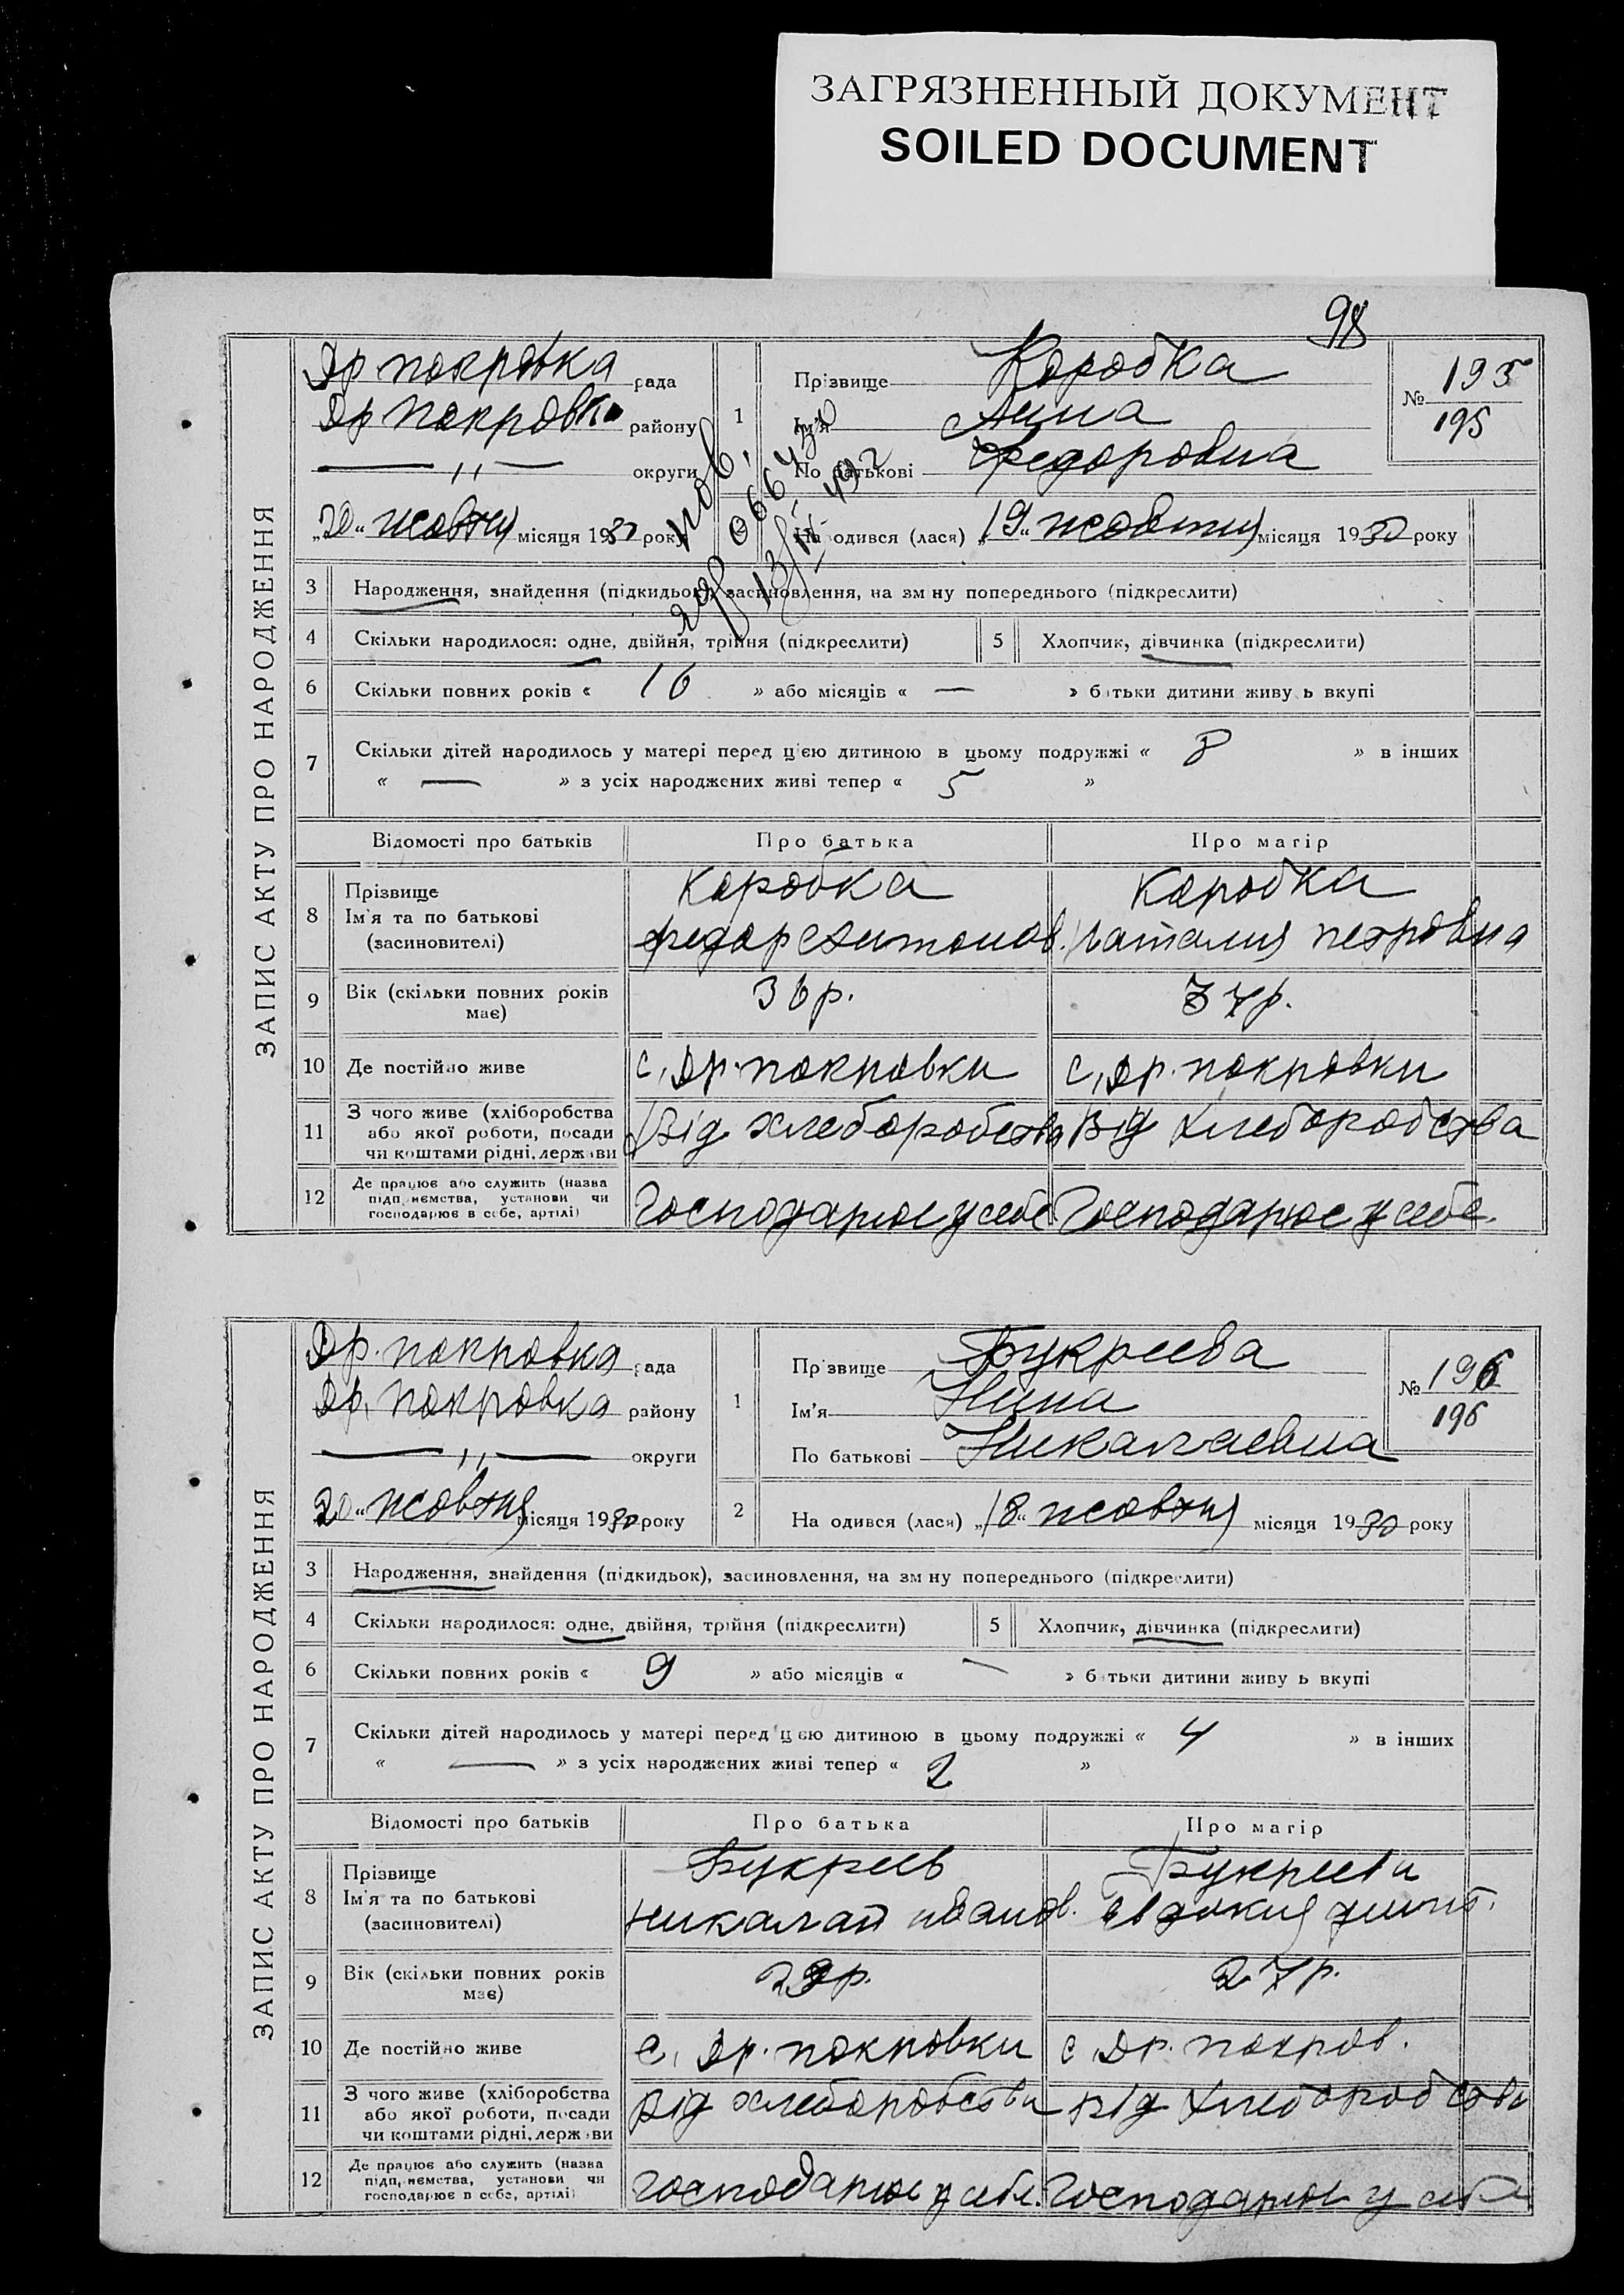 ЗАГРЯЗНЕННЫЙ ДОКУМЕНТ
SOILED DOCUMENT
98
ЗАПИС АКТУ ПРО НАРОДЖЕННЯ
Др покровка рада
Др Покровка району
— " — округи
1
Прізвище Коробка
Ім'я Анна
По батькові Федоровна
№ 195
195
„20“ жовтня місяця 1930 року
На одився (лася) „19“ жовтня місяця 1930 року
3 Народження, знайдення (підкидьок), засиновлення, на зм ну попереднього (підкреслити)
4 Скільки народилося: одне, двійня, трійня (підкреслити) 5 Хлопчик, дівчинка (підкреслити)
6 Скільки повних років « 16 » або місяців « — » батьки дитини живу ь вкупі
7 Скільки дітей народилось у матері перед цією дитиною в цьому подружжі « 8 » в інших
« — » з усіх народжених живі тепер « 5 »
Відомості про батьків Про батька Про матір
8 Прізвище
Ім'я та по батькові
(засиновителі)
Коробка
Федор Антонов.
Коробка
Наталия петровна
9 Вік (скільки повних років має) 36 р. 37 р.
10 Де постійно живе с, др. покровки с, др. покровки
11 З чого живе (хліборобства
або якої роботи, посади
чи коштами рідні, держави
Від хлеборобства Від хлеборобства
12 Де працює або служить (назва
підприємства, установи чи
господарює в себе, артілі)
Господарює у себе Господарює у себе.
ЗАПИС АКТУ ПРО НАРОДЖЕННЯ
Др. покровка рада
Др. Покровка району
— " — округи
1
Прізвище Букреева
Ім'я Нина
По батькові Никалаевна
№ 196
196
20“ жовтня місяця 1930 року
2 На одився (лася) „18“ жовтня місяця 1930 року
3 Народження, знайдення (підкидьок), засиновлення, на зм ну попереднього (підкреслити)
4 Скільки народилося: одне, двійня, трійня (підкреслити) 5 Хлопчик, дівчинка (підкреслити)
6 Скільки повних років « 9 » або місяців « — » батьки дитини живу ь вкупі
7 Скільки дітей народилось у матері перед цією дитиною в цьому подружжі « 4 » в інших
« — » з усіх народжених живі тепер « 2 »
Відомості про батьків Про батька Про матір
8 Прізвище
Ім'я та по батькові
(засиновителі)
Букреев
Никалай иванов.
Букреева
Евдокия
9 Вік (скільки повних років має) р. 27 р.
10 Де постійно живе с, др. покровки с др. покров.
11 З чого живе (хліборобства
або якої роботи, посади
чи коштами рідні, держави
Від хлеборобства Від хлеборобства
12 Де працює або служить (назва
підприємства, установи чи
господарює в себе, артілі)
Господарює у себе. Господарює у себе